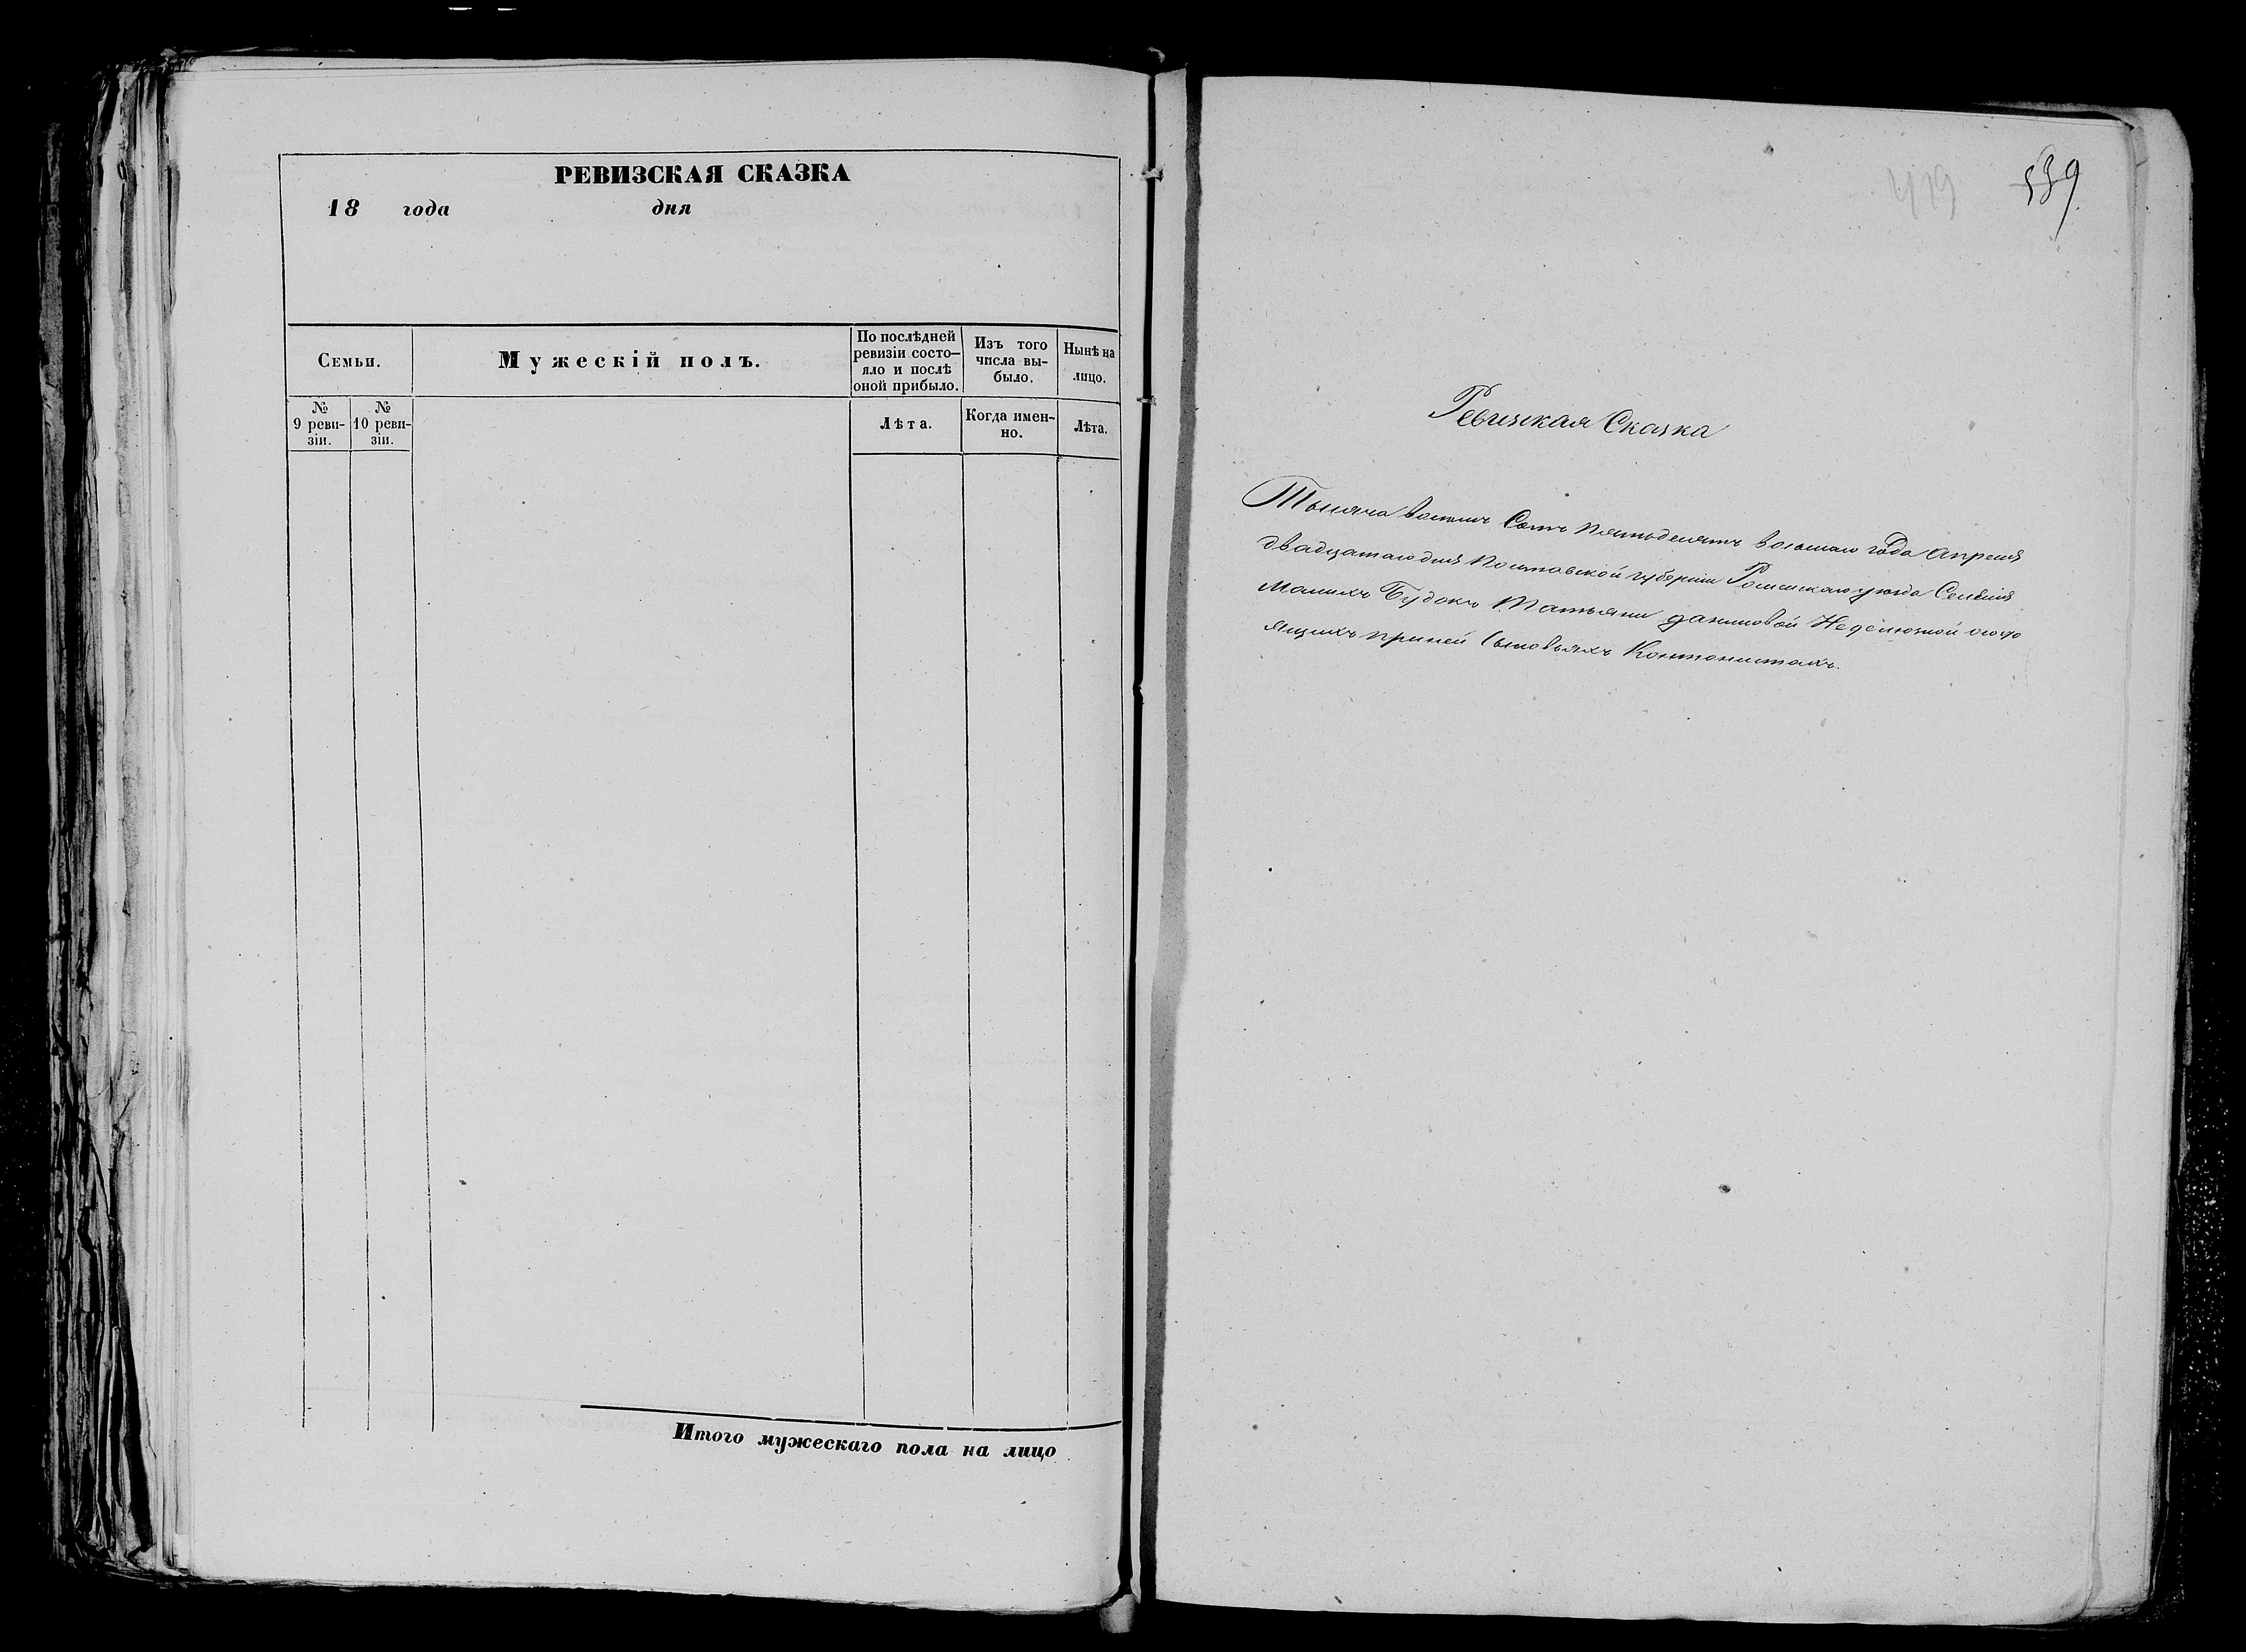 РЕВИЗСКАЯ СКАЗКА
18 года дня
Семьи.
Мужескій полъ.
По послѣдней ревизіи состо—яло и послѣ оной прибыло.
Изъ того числа вы-было.
Нынѣ на лицо.
№ 9 реви-зіи.
№ 10 реви-зіи.
Лѣта.
Когда имен-но.
Лѣта.
Итого мужескаго пола на лицо
419
539
Ревизская Сказка
Тысяча восемь Сотъ пятьдесятъ восьмаго года Апреля
двадцатаго дня Полтавской губерніи Роменскаго уезда Селенія
Малихъ Будокъ Татьяни Даниловой состо
ящихъ приней Сыновьяхъ Контонистахъ.